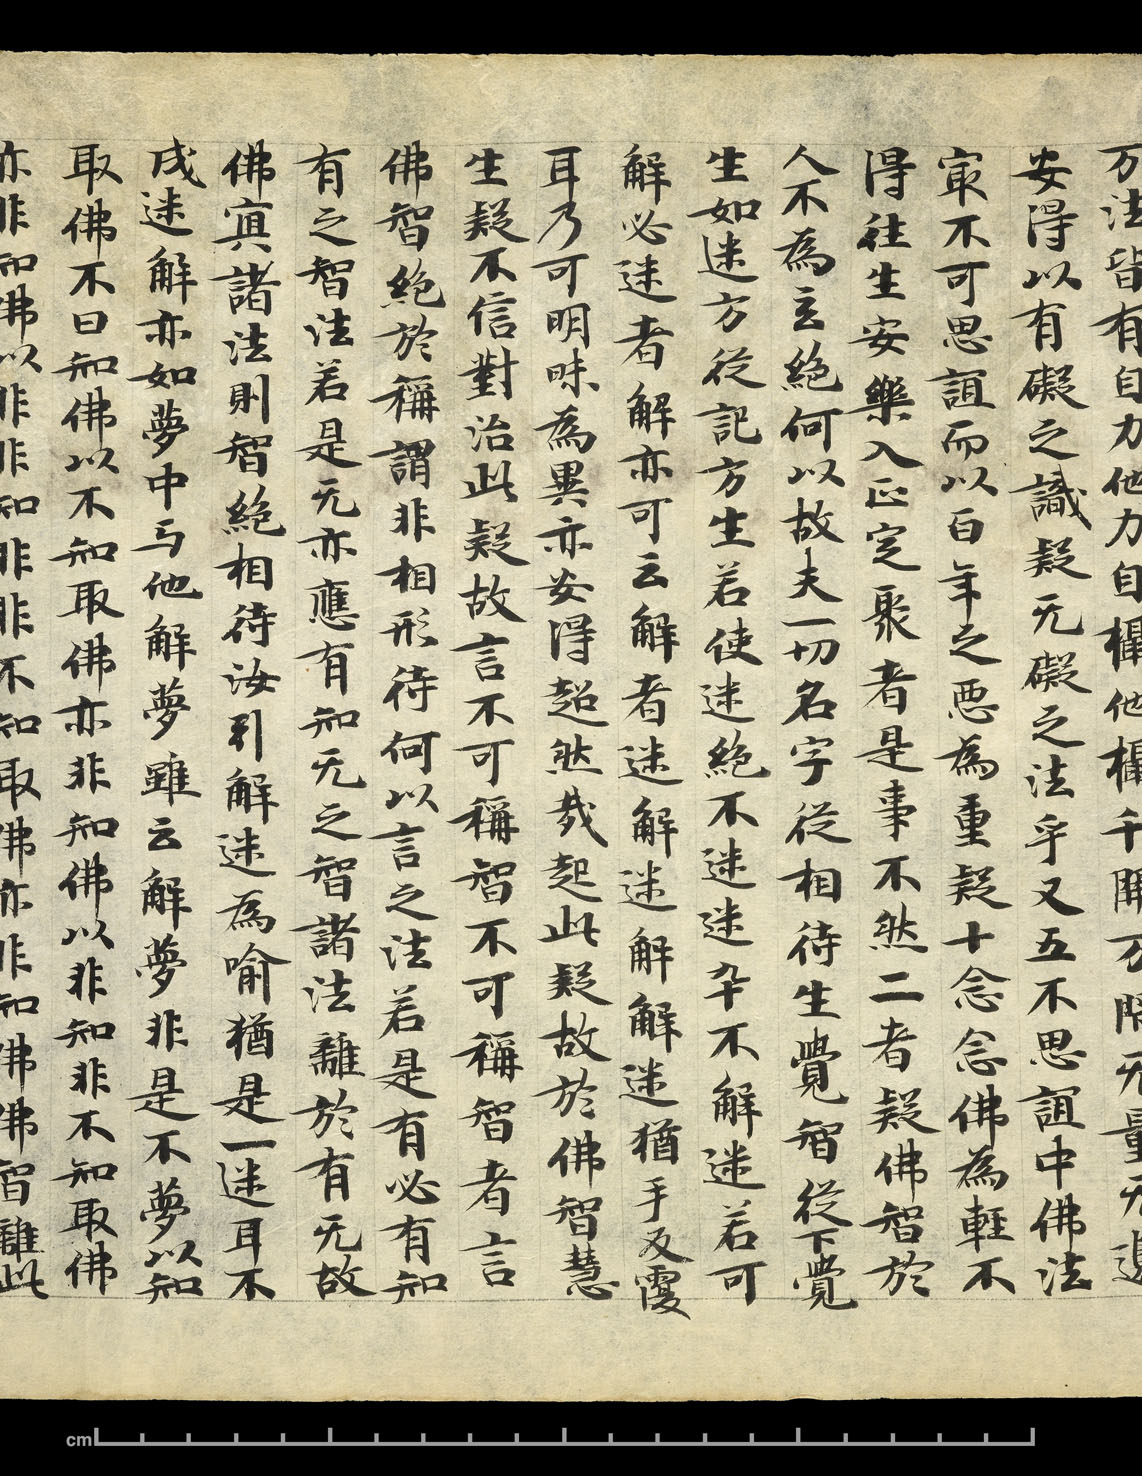 万法皆有自力他力自攝他攝千開万閇无量无邊
安得以有礙之識疑无礙之法乎又五不思誼中佛法
寂不可思誼而以百年之惡為重疑十念念佛為輕不
得往生安樂入正定聚者是事不然二者疑佛智於
人不為玄絶何以故夫一切名字從相待生覺智從下覺
生如迷方從記方生若使迷絶不迷迷卒不解迷若可
解必迷者解亦可云解者迷解迷解解迷猶手反覆
耳乃可明昧為異亦安得超然哉起此疑故於佛智慧
生疑不信對治此疑故言不可稱智不可稱智者言
佛智絶於稱謂非相形待何以言之法若是有必有知
有之智法若是无亦應有知无之智諸法離於有无故
佛冥諸法則智絶相待汝引解迷為喻猶是一迷耳不
成迷解亦如夢中与他解夢雖云解夢非是不夢以知
取佛不曰知佛以不知取佛亦非知佛以非知非不知取佛
亦非知佛以非非知非非不知取佛亦非知佛佛智離此